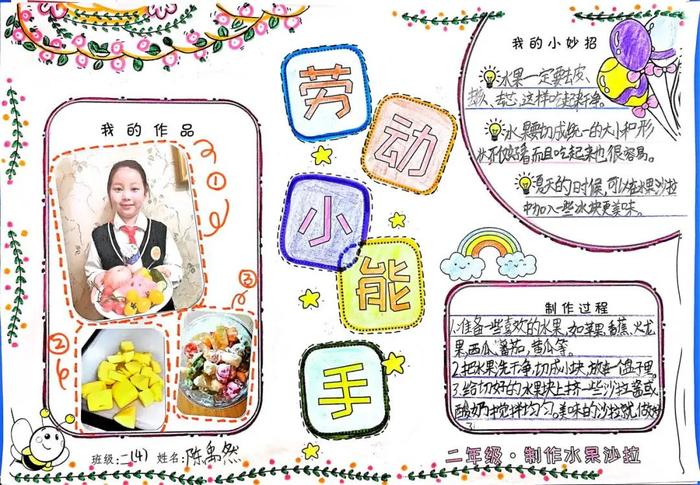 劳
动
小
能
手
我的作品
①
②
③
班级:二(4) 姓名:陈禹然
我的小妙招
水果一定要去皮、
去芯,这样吃起来
水果要切成统一的大小和形
状不仅好看而且吃起来也很容易。
夏天的时候,可以在水果沙拉
中加入一些冰块更美味。
制作过程
1.准备一些喜欢的水果,如苹果,香蕉,火龙
果,西瓜,番茄,黄瓜等。
2.把水果洗干净,切成小块,放在一个盘子里。
3.给切好的水果块上挤一些沙拉酱或
酸奶,搅拌均匀。美味的沙拉就做好
了
二年级·制作水果沙拉